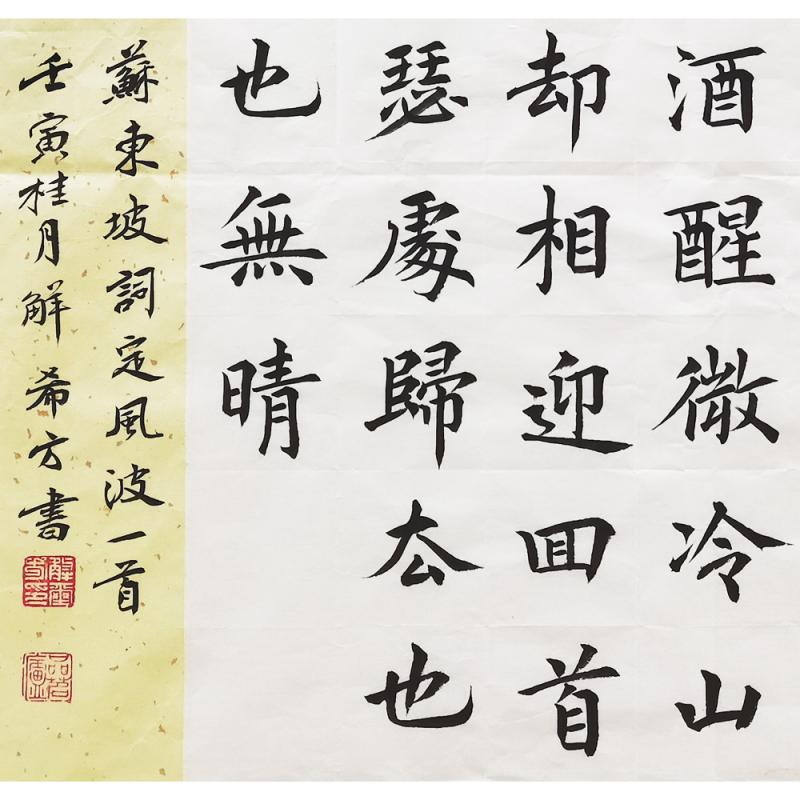 酒醒微冷山
却相迎回首
瑟處歸去也
也無晴
蘇東坡詞定風波一首
壬寅桂月解希方書